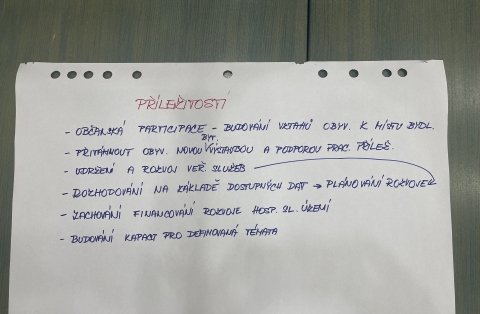 PŘÍLEŽITOSTÍ
- OBČANSKÁ PARTICIPACE - BUDOVÁNÍ VZTAHŮ OBYV. K MÍSTU BYDL.
- PŘITÁHNOUT OBYV. NOVOU BYT. VÝSTAVBOU A PODPOROU PRAC. PŘÍLEŽ.
- UDRŽENÍ A ROZVOJ VEŘ. SLUŽEB
- ROZHODOVÁNÍ NA ZÁKLADĚ DOSTUPNÝCH DAT → PLÁNOVÁNÍ ROZVOJE
- ZACHOVÁNÍ FINANCOVÁNÍ ROZVOJE HOSP. SL. ÚZEMÍ
- BUDOVÁNÍ KAPACIT PRO DEFINOVANÁ TÉMATA